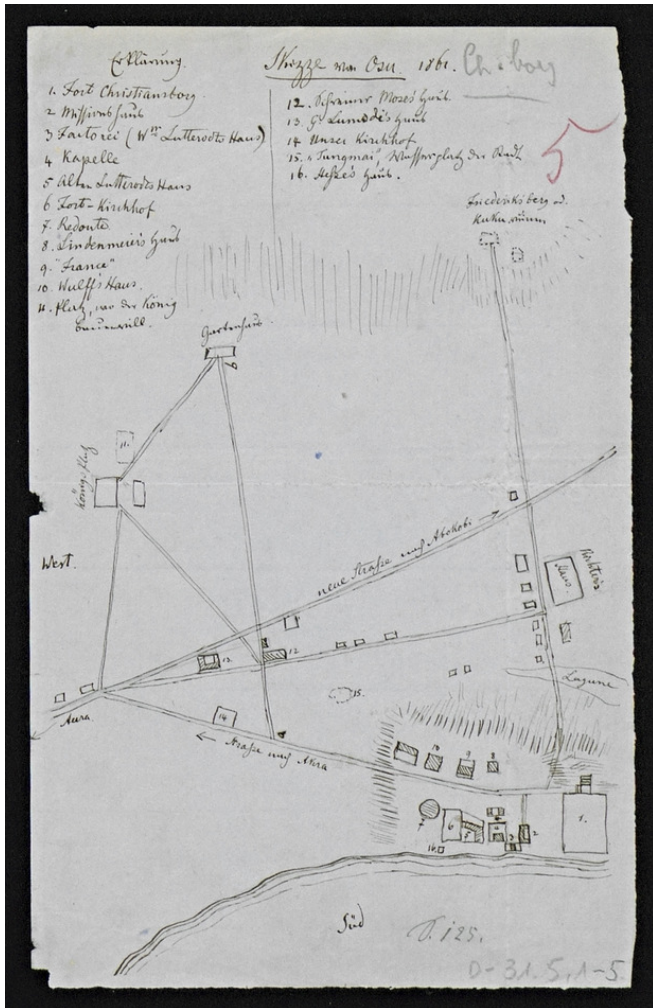 Erklärung.
1. Fort Christiansborg
2 Missionshaus
3 Factorei (Wm Lutterodts Haus)
4 Kapelle
5 Alten Lutterodts Haus
6 Fort-Kirchhof
7. Redoute
8. Lindenmeier's Haus
9. "France"
10. Wulff's Haus.
11. Platz, wo der König
bauen will.
Skizze von Osu. 1861.
Ch.borg
12. Schreiner Mose's Haus.
13. Haus
14 Unser Kirchhof
15. Wasserplatz der Stadt
16. Hesse's Haus.
5
Friedriksberg od.
Gartenhaus.
11.
Königs Platz
West.
neue Straße nach Abokobi
Haus.
Richter's
13.
12
15.
Lagune
14
Akra.
← Straße nach Akra
10
9
8
7
6
5
4
3
2
1.
16.
Süd
125.
D-31.5,1-5.